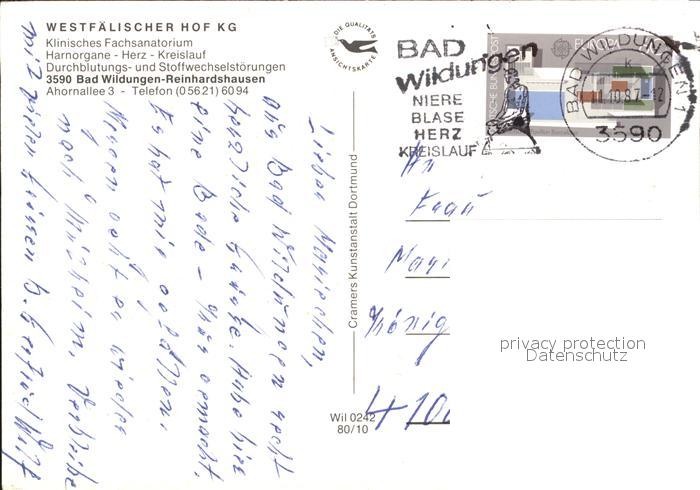 WESTFÄLISCHER HOF KG
Klinisches Fachsanatorium
Harnorgane - Herz - Kreislauf
Durchblutungs- und Stoffwechselstörungen
3590 Bad Wildungen-Reinhardshausen
Ahornallee 3 - Telefon (05621) 6094
DIE QUALITÄTS
ANSICHTSKARTE
BAD
Wildungen
NIERE
BLASE
HERZ
KREISLAUF
BAD WILDUNGEN 1
k
3590
EUROPA
Liebes Mariechen,
Aus Bad Wildungen recht
herzliche Grüße. Habe hier
eine Bade-Kur gemacht.
Es hat mir gefallen.
Morgen geht es wieder
nach Mülheim. Verbleibe
mit vielen Grüßen
Cramers Kunstanstalt Dortmund
An
Frau
König
Wil 0242
80/10
privacy protection
Datenschutz